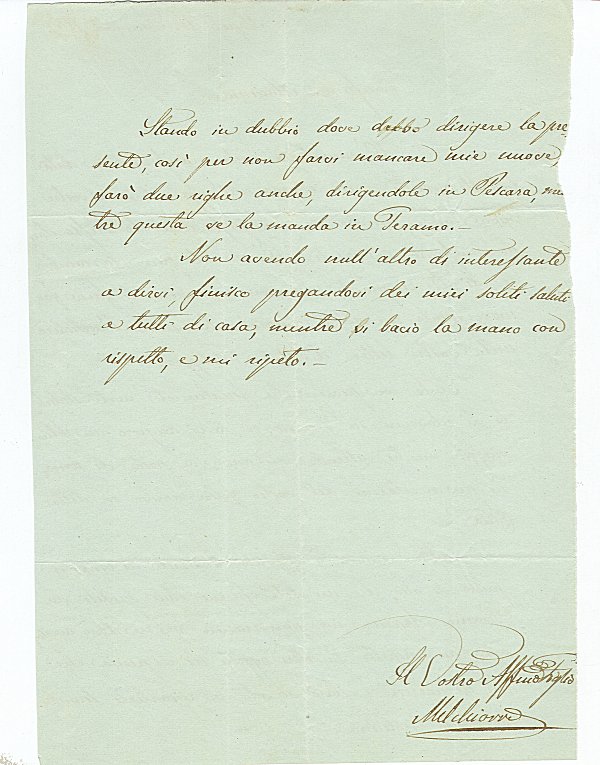 Stando in dubbio dove debbo dirigere la pre-
sente, così per non farvi mancare mie nuove,
farò due righe anche, dirigendole in Pescara, men
tre questa se la manda in Teramo.—
Non avendo null'altro di interessante
a dirvi, finisco pregandovi dei miei soliti saluti
a tutti di casa, mentre vi bacio la mano con
rispetto, e mi ripeto.—
Il Vostro Affmo Figlio
Melchiorre